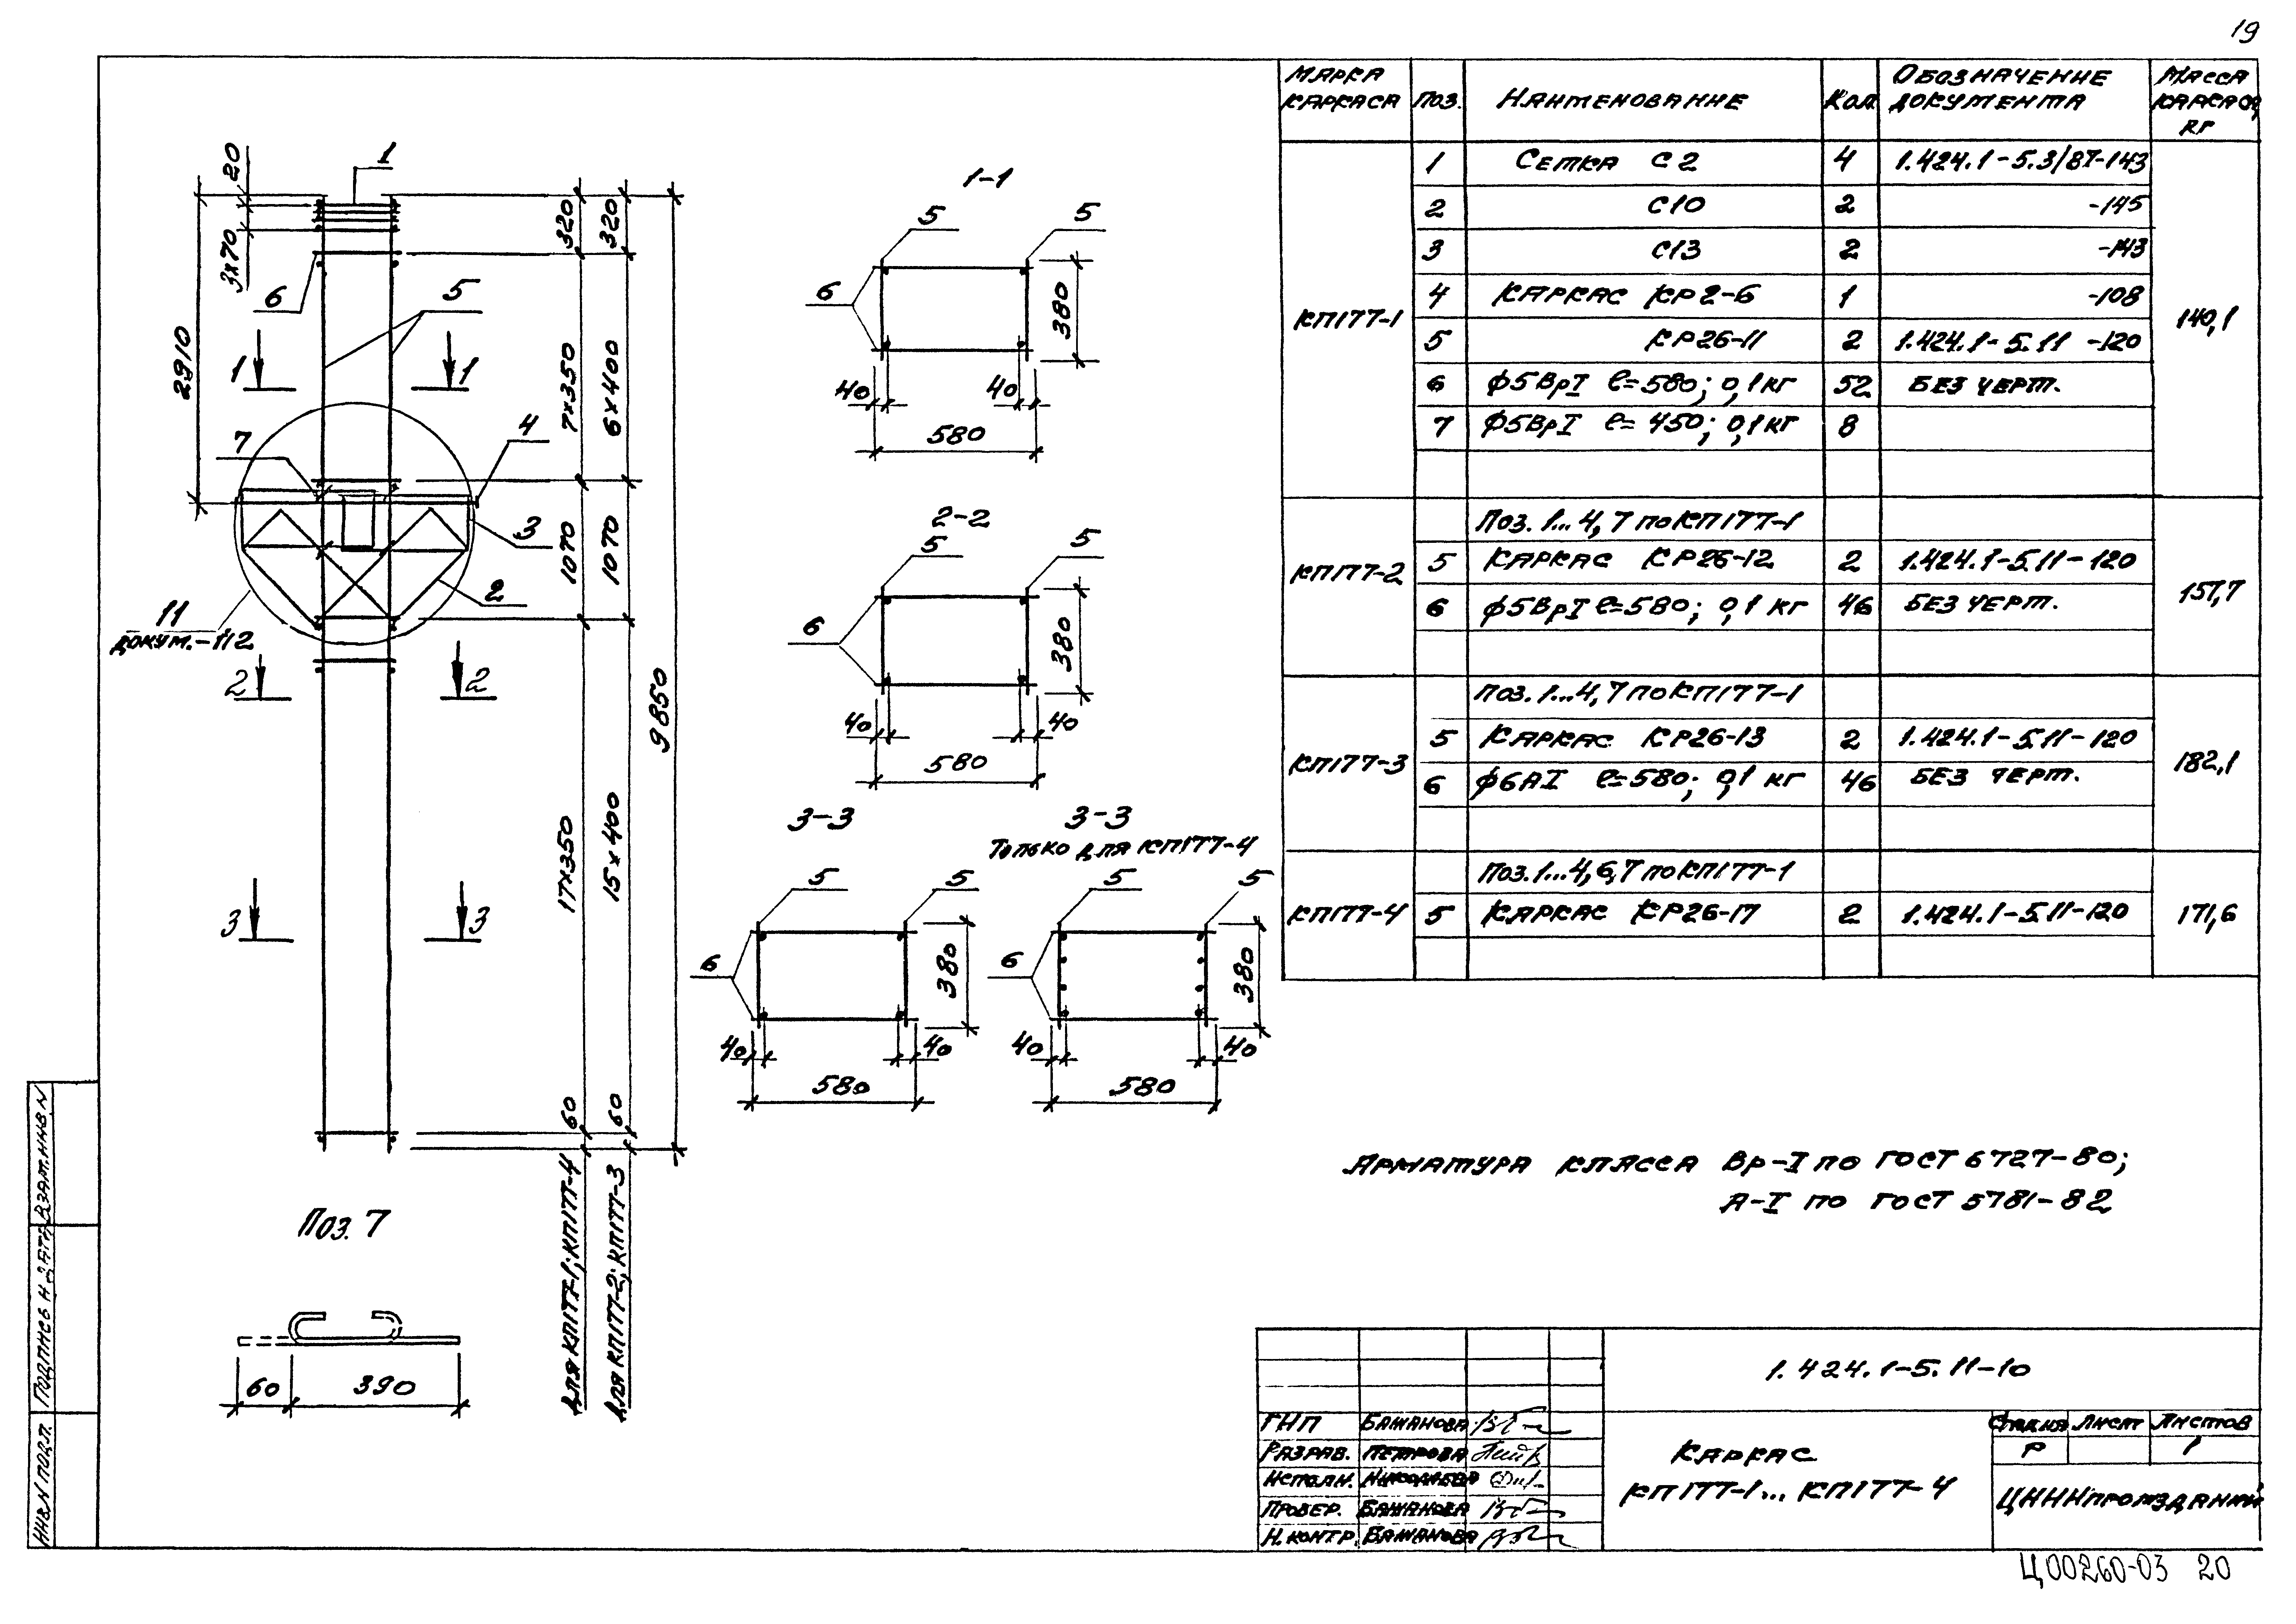 19
МАРКА КАРКАСА ПОЗ. НАИМЕНОВАНИЕ КОЛ. ОБОЗНАЧЕНИЕ ДОКУМЕНТА МАССА КАРКАСА, КГ
КП177-1
1 СЕТКА С2 4 1.424.1-5.3/87-143
2 С10 2 -145
3 С13 2 -143
4 КАРКАС КР2-6 1 -108
5 КР26-11 2 1.424.1-5.11 -120
6 ϕ5ВрI ℓ=580; 0,1кг 52 БЕЗ ЧЕРТ.
7 ϕ5ВрI ℓ=450; 0,1кг 8
140,1
КП177-2
ПОЗ. 1...4, 7 ПО КП177-1
5 КАРКАС КР26-12 2 1.424.1-5.11-120
6 ϕ5ВрI ℓ=580; 0,1 кг 46 БЕЗ ЧЕРТ.
157,7
КП177-3
ПОЗ. 1...4, 7 ПО КП177-1
5 КАРКАС КР26-13 2 1.424.1-5.11-120
6 ϕ6АI ℓ=580; 0,1 кг 46 БЕЗ ЧЕРТ.
182,1
КП177-4
ПОЗ. 1...4, 6, 7 ПО КП177-1
5 КАРКАС КР26-17 2 1.424.1-5.11-120
171,6
20
3х70
2910
1
6
5
1 1
7
4
3
2
11
ДОКУМ.-112
2 2
3 3
320
7х350
1070
17х350
60
ДЛЯ КП177-1; КП177-4
320
6х400
1070
15х400
60
ДЛЯ КП177-2; КП177-3
9850
1-1
5 5
6
380
40 40
580
2-2
5 5
6
380
40 40
580
3-3
5 5
6
380
40 40
580
3-3
ТОЛЬКО ДЛЯ КП177-4
5 5
6
380
40 40
580
ПОЗ. 7
60 390
АРМАТУРА КЛАССА Вр-I ПО ГОСТ 6727-80;
А-I ПО ГОСТ 5781-82
1.424.1-5.11-10
ГИП БАЖАНОВА
РАЗРАБ. ПЕТРОВА
ИСПОЛН. НИКОЛАЕВА
ПРОВЕР. БАЖАНОВА
Н.КОНТР. БАЖАНОВА
КАРКАС
КП177-1... КП177-4
СТАДИЯ ЛИСТ ЛИСТОВ
Р 1
ЦНИИПРОМЗДАНИЙ
ИНВ.N ПОДЛ. ПОДПИСЬ И ДАТА ВЗАМ.ИНВ.N
Ц00260-03 20